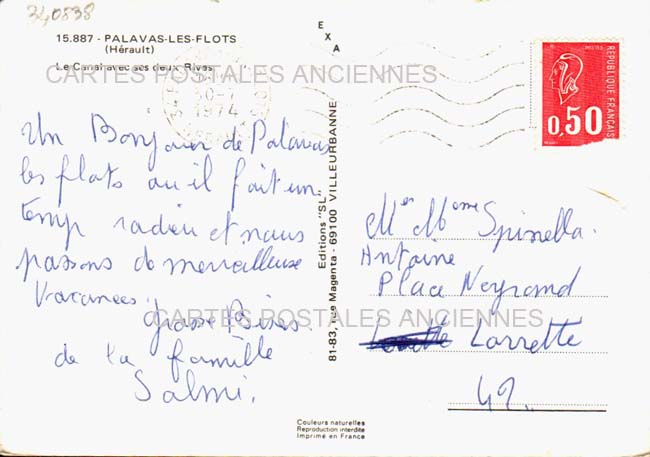 340838
15.887 - PALAVAS-LES-FLOTS
(Hérault)
Le Canal avec ses deux Rives
CARTES POSTALES ANCIENNES
Un Bonjour de Palavas
les flots ou il fait un
temp radieu et nous
passons de merveilleuse
vacances. grosse Bises
de la famille
Salmi.
EXA
Editions "SL"
81-83, rue Magenta - 69100 VILLEURBANNE
1974
REPUBLIQUE FRANÇAISE
POSTES
0,50
Mr Mme Spinella.
Antoine
Place Neyrand
Lorrette
42.
CARTES POSTALES ANCIENNES
Couleurs naturelles
Reproduction interdite
Imprimé en France